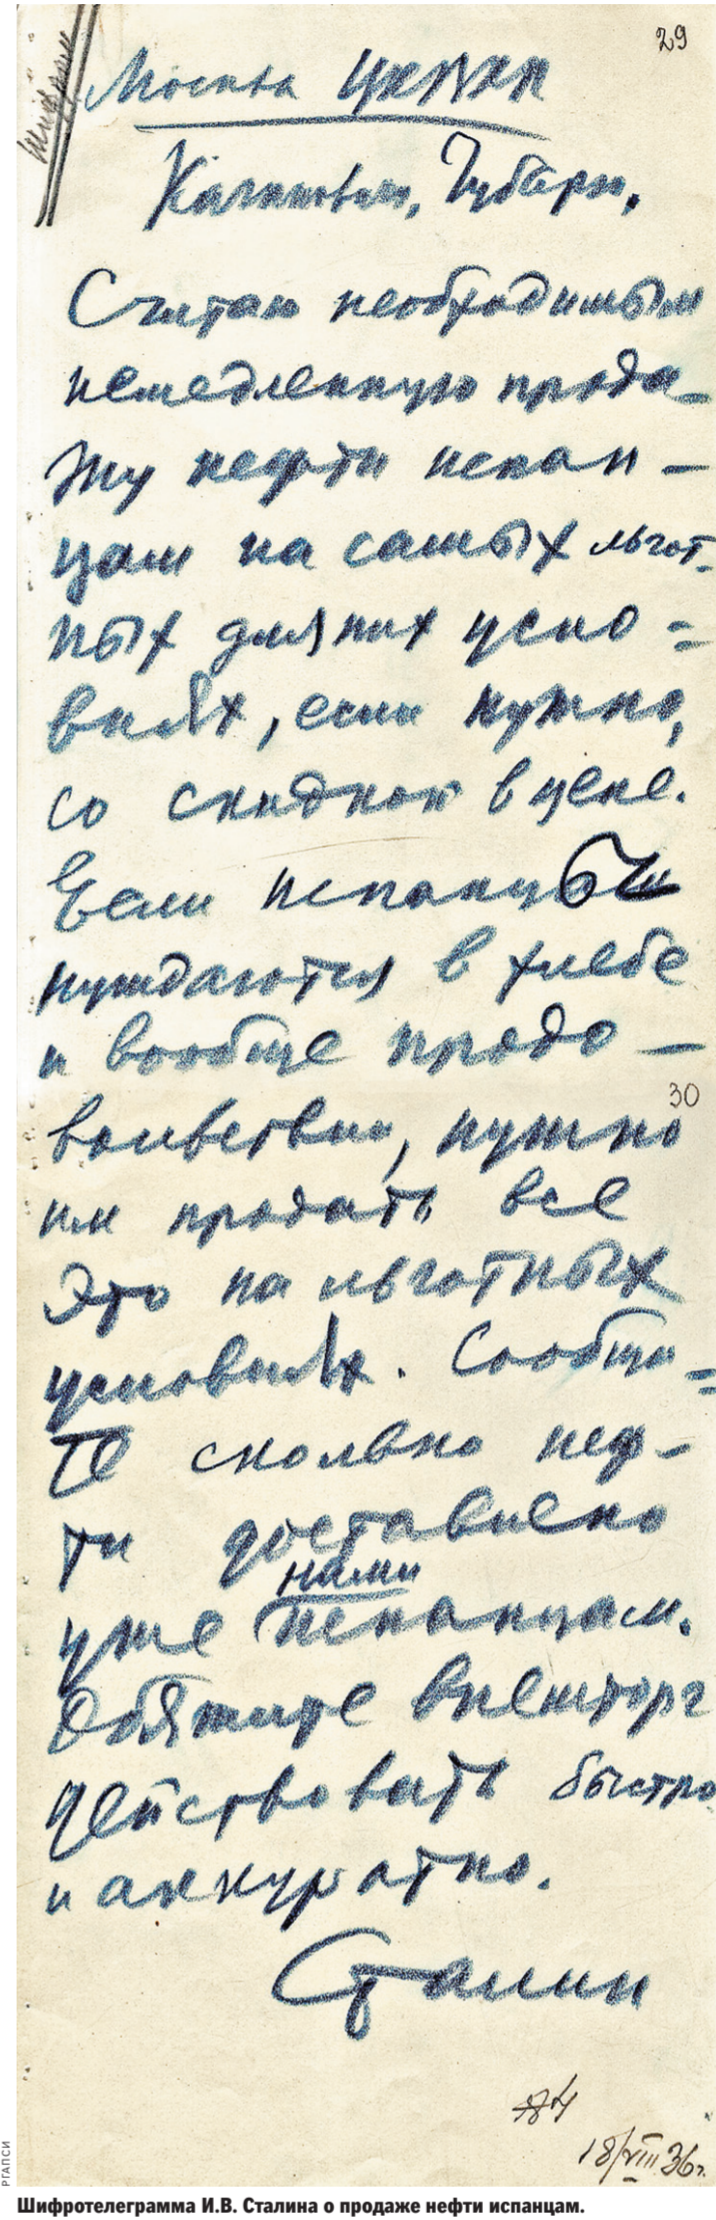 29
Шифром
Москва ЦКВКП
Кагановичу, Чубарю,
Считаю необходимым
немедленную прода-
жу нефти испан-
цам на самых льгот-
ных для них усло=
виях, если нужно,
со скидкой в цене.
Если испанцы
нуждаются в хлебе
и вообще продо-
30
вольствии, нужно
им продать все
это на льготных
условиях. Сообщи=
те сколько неф-
ти доставлено
нами
уже испанцам.
Обяжите внешторг
действовать быстро
и аккуратно.
Сталин
18/VIII 36г.
РГАПСИ
Шифротелеграмма И.В. Сталина о продаже нефти испанцам.